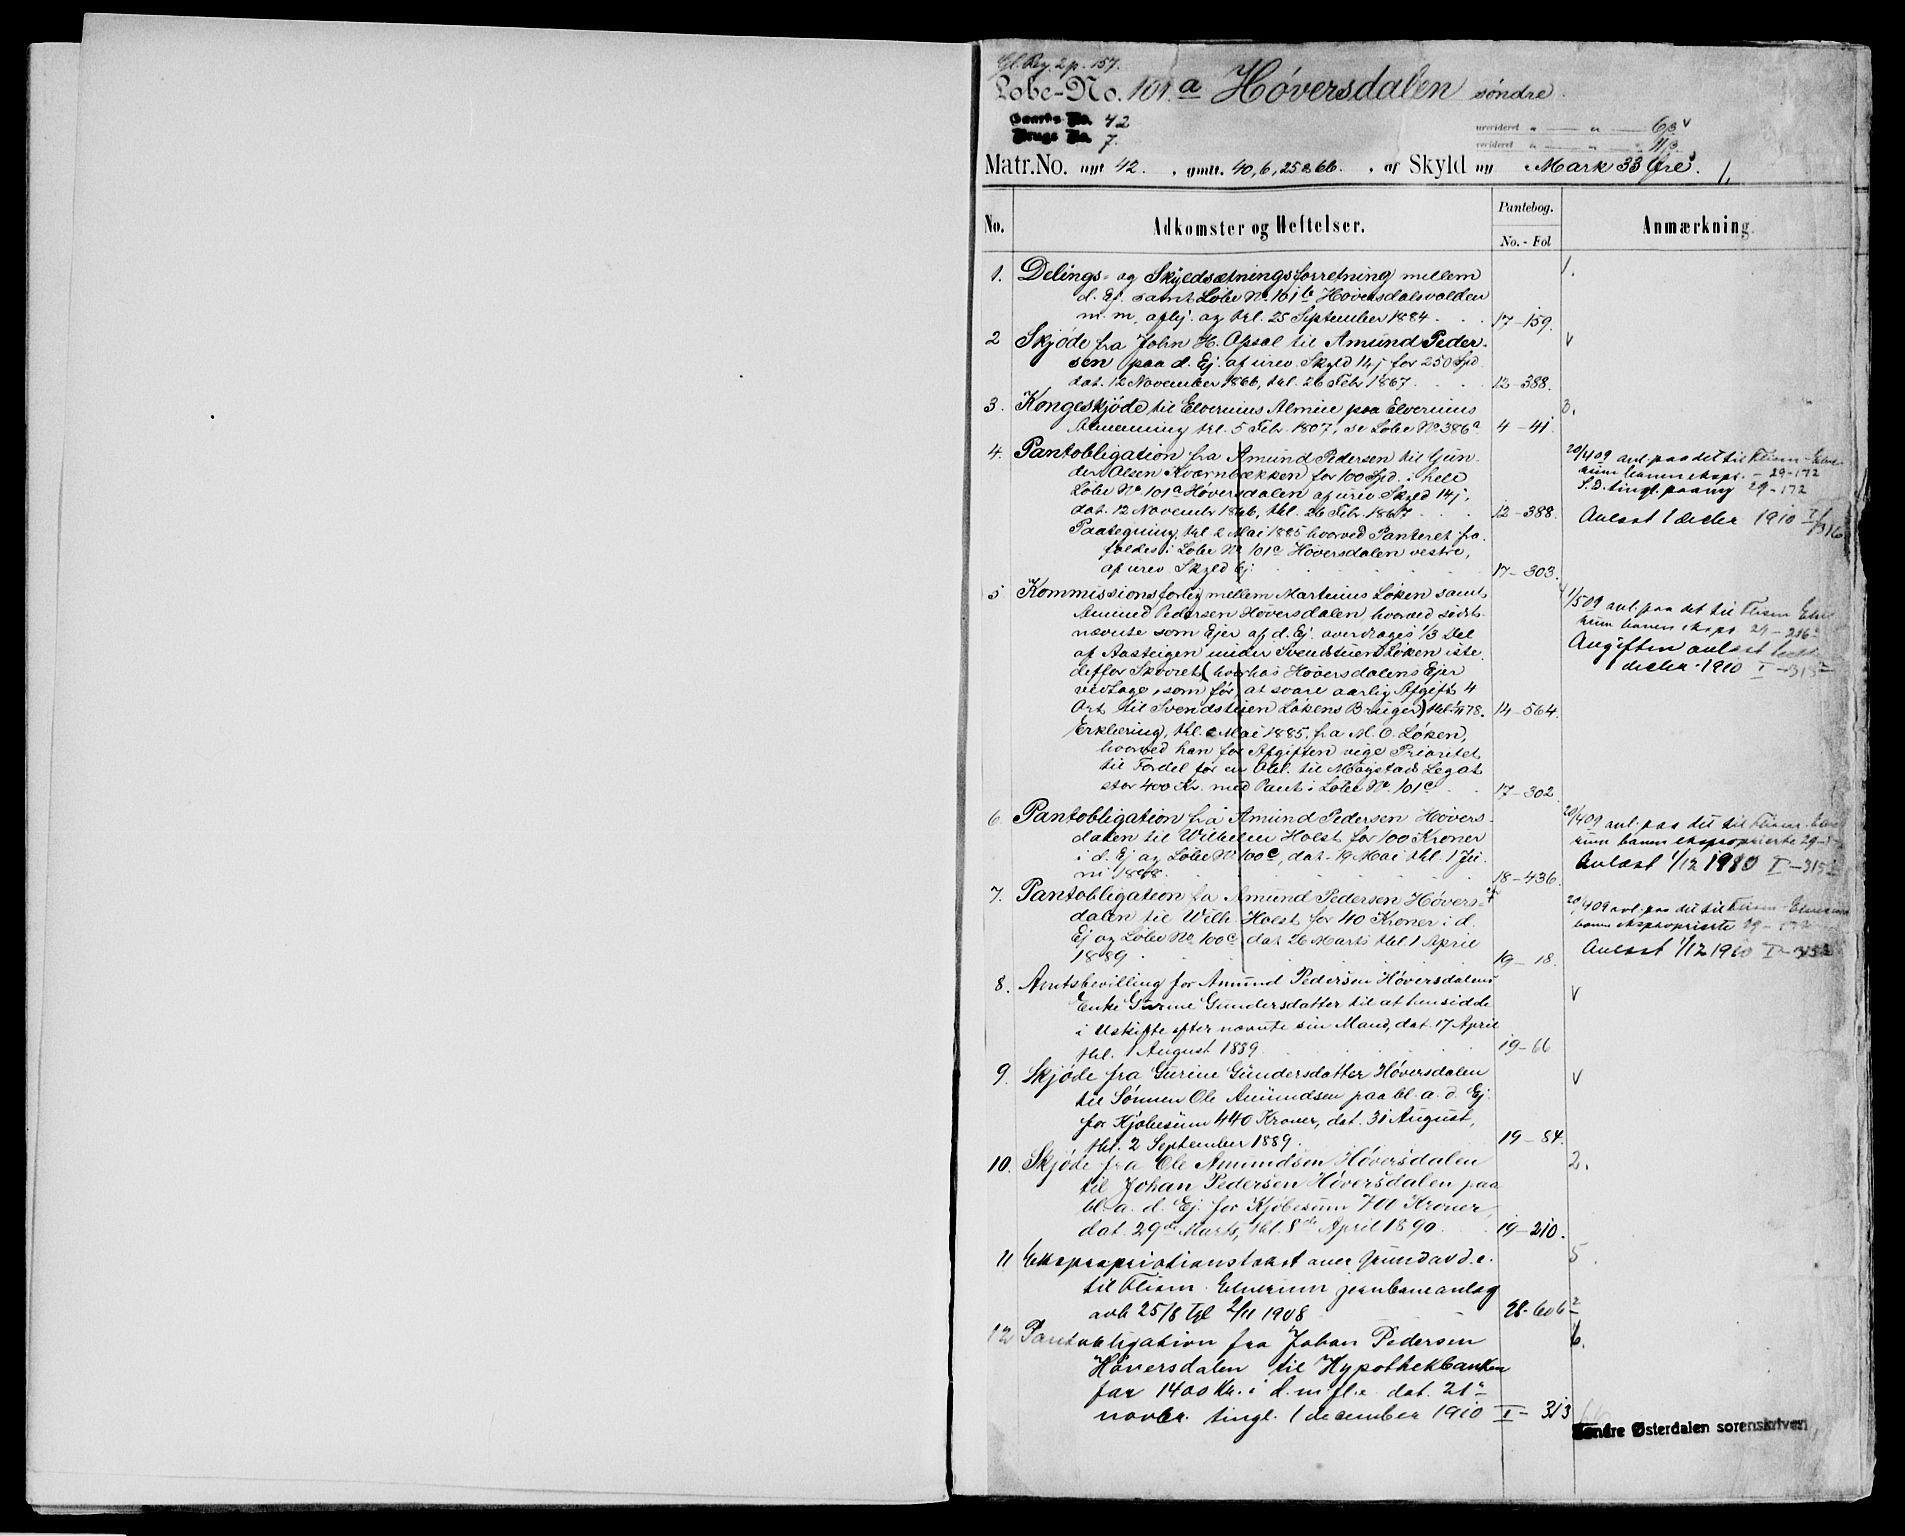 Gl. Reg. 2 p. 157.
Løbe-No. 101.a Høversdalen søndre.
Gaards No. 42
Brugs No. 7.
urevideret " — " — 6 β v
revideret " — " — " 11 β
Matr.No. nyt 42. , gmlt. 40, 6, 25 & 66. , af Skyld ny Mark 33 Øre. 1,
No. Adkomster og Heftelser. Pantebog. No. - Fol Anmærkning.
1. Delings- og Skyldsætningsforretning mellem 1.
d. Ej. samt Løbe No. 101b Høversdalsvolden
m. m, afhj. og thl. 25 September 1884 . . 17-159.
2 Skjøde fra John H. Opsal til Amund Peder- v
sen paa d. Ej. af urev. Skyld 14 j for 250 Spd
dat. 12 November 1866, thl. 26 Febr 1867 . . . 12-388.
3. Kongeskjøde til Elverums Almue paa Elverums 3.
Almenning thl. 5 Febr. 1807, se Løbe No 386a 4-41.
4. Pantobligation fra Amund Pedersen til Gun-
der Olsen Kværnbækken for 100 Spd. i hele
Løbe No 101a Høversdalen af urev Skyld 14 j,
dat. 12 Novembr 1866, thl. 26 Febr. 1867 . . . 12-388.
20/4 09 avl. paa det til Flisen-Elve-
rum banen ekspr. - 29-172
S. D. tingl. paany 29-172
Avlæst 1 decbr 1910 I/316
Paategning, thl. 2 Mai 1885 hvorved Panteret fra-
faldes i Løbe No 101c Høversdalen vestre,
af urev Skyld 6 j . . . . 17-303.
5 Kommissionsforlig mellem Martinus Løken samt
Amund Pedersen Høversdalen, hvorved sidst-
nævnte som Ejer af d. Ej. overdrages 1/3 Del
af Aasteigen under Svendstuen Løken iste-
detfor Skovret (hvorhos Høversdalens Ejer
vedtage, som før, at svare aarlig Afgift 4
Ort til Svendstuen Løkens Bruger) thl. 78. 14-564.
11/5 09 avl. paa det til Flisen Elve-
rum banen ekspr. 29-216
Avgiften avlæst 1
decbr. 1910 I-315
Erklæring, thl. 2 Mai 1885, fra M. O. Løken,
hvorved han for Afgiften vige Prioritet
til Fordel for en Obl. til Møystads Legat
stor 400 Kr. med Pant i Løbe No. 101c . 17-302
6. Pantobligation fra Amund Pedersen Høvers-
dalen til Wilhelm Holst for 100 Kroner
i d. Ej og Løbe No 100c, dat. 19 Mai thl. 1 Ju-
ni 1888. . . . . 18-436.
20/4 09 avl. paa det til Flisen-Elve-
rum banen eksproprierte 29-
Avlæst 1/12 1910 I-315
7. Pantobligation fra Amund Pedersen Høvers-
dalen til Wilh. Holst for 40 Kroner i d.
Ej og Løbe No 100c, dat 26 Marts thl 1 April
1889 . . . . 19-18.
20/4 09 avl. paa det til Flisen-Elverum
banen eksproprierte 29-172
Avlæst 1/12 1910 I-315
8. Amtsbevilling for Amund Pedersen Høversdalens v
Enke Gurine Gundersdatter til at hensidde
i Uskifte efter nævnte sin Mand, dat. 17 April
thl. 1 August 1889. . . . 19-66
9. Skjøde fra Gurine Gundersdatter Høversdalen v
til Sønnen Ole Amundsen paa bl. a. d. Ej.
for Kjøbesum 440 Kroner, dat. 31 August,
thl. 2 September 1889. . . 19-84.
10. Skjøde fra Ole Amundsen Høversdalen 2.
til Johan Pedersen Høversdalen paa
bl. a. d. Ej. for Kjøbesum 700 Kroner,
dat. 29de Marts, thl. 8de April 1890. . 19-210.
11 Ekspropriationstakst over Grund av d. e. 5
til Flisen-Elverum jernbaneanlæg
avh 25/8 tgl 2/11 1908 — 28-606
12 Pantobligation fra Johan Pedersen 6.
Høversdalen til Hypothekbanken
for 1400 Kr. i d. m. fl. e. dat. 21
novbr. tingl. 1 december 1910 I-313
Søndre Østerdalen sorenskriveri